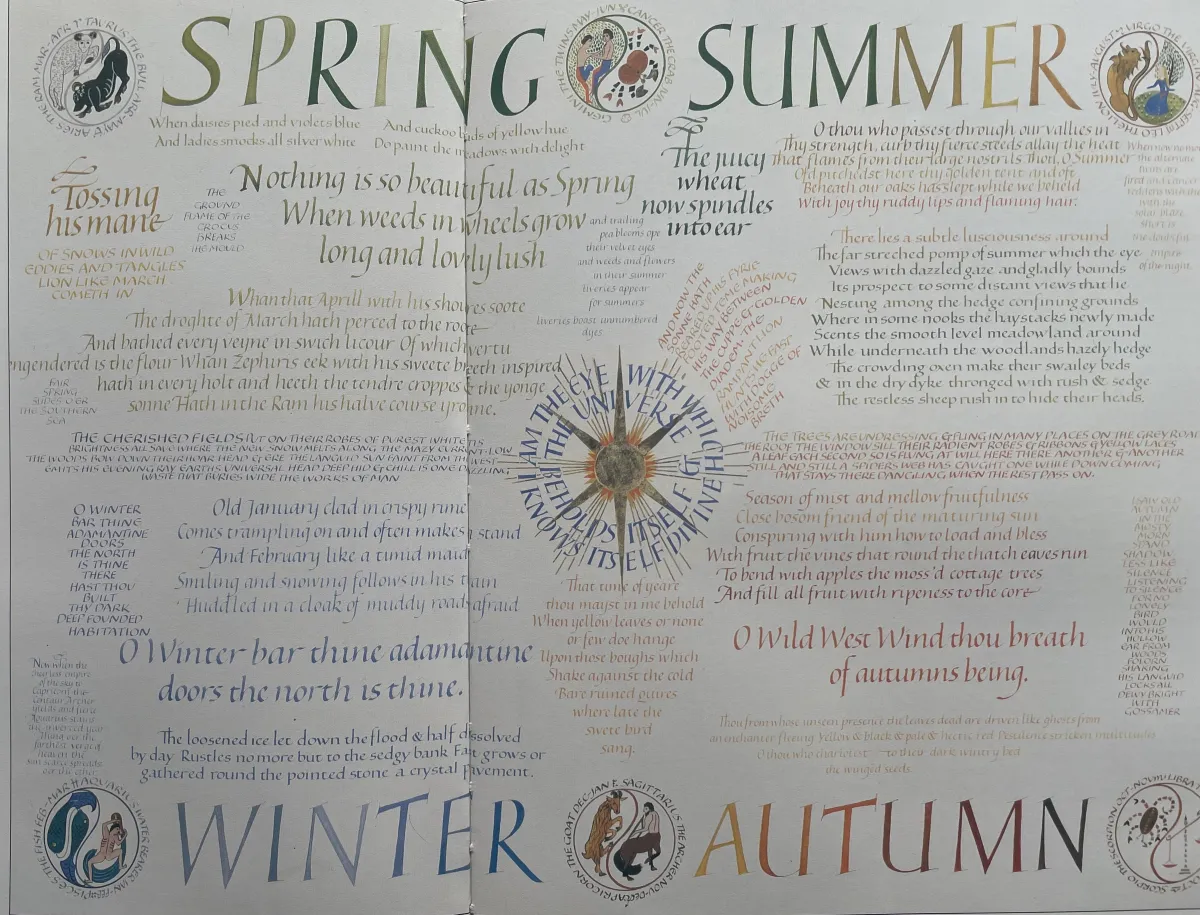 SPRING
SUMMER
When daisies pied and violets blue
And ladies smocks all silver white
And cuckoo buds of yellow hue
Do paint the meadows with delight
Tossing
his mane
OF SNOWS IN WILD
EDDIES AND TANGLES
LION LIKE MARCH
COMETH IN
THE
GROUND
FLAME OF THE
CROCUS
BREAKS
THE MOULD
Nothing is so beautiful as Spring
When weeds in wheels grow
long and lovely lush
and trailing
pea blooms ope
their velvet eyes
and weeds and flowers
in their summer
liveries appear
for summers
liveries boast unnumbered
dyes
Whan that Aprill with his shoures soote
The droghte of March hath perced to the roote
And bathed every veyne in swich licour Of which vertu
engendered is the flour Whan Zephirus eek with his sweete breeth inspired
hath in every holt and heeth the tendre croppes & the yonge
sonne Hath in the Ram his halve course yronne.
FAIR
SPRING
SLIDES O'ER
THE SOUTHERN
SEA
The juicy
wheat
now spindles
into ear
O thou who passest through our vallies in
Thy strength, curb thy fierce steeds allay the heat
That flames from their large nostrils Thou, O Summer
Oft pitchedst here thy golden tent and oft
Beneath our oaks hast slept while we beheld
With joy thy ruddy lips and flaming hair.
There lies a subtle lusciousness around
The far streched pomp of summer which the eye
Views with dazzled gaze and gladly bounds
Its prospect to some distant views that lie
Nestling among the hedge confining grounds
Where in some nooks the haystacks newly made
Scents the smooth level meadowland around
While underneath the woodlands hazely hedge
The crowding oxen make their swailey beds
& in the dry dyke thronged with rush & sedge
The restless sheep rush in to hide their heads.
AND NOW THE
SONNE HATH
REARED UP HIS FYRIE
FOOTED TEME MAKING
HIS WAY BETWEEN
THE CUPPE & GOLDEN
DIADEM THE
RAMPANT LION
HUNTS HE FAST
WITH DOGGE OF
NOISOME
BRETH
I AM THE EYE WITH WHICH THE UNIVERSE BEHOLDS ITSELF & KNOWS ITSELF DIVINE
THE CHERISHED FIELDS PUT ON THEIR ROBES OF PUREST WHITE TIS
BRIGHTNESS ALL SAVE WHERE THE NEW SNOW MELTS ALONG THE MAZY CURRENT LOW
THE WOODS BOW DOWN THEIR HOAR HEAD & ERE THE LANGUID SUN FAINT FROM THE WEST
EMITS HIS EVENING RAY EARTHS UNIVERSAL HEAD DEEP HID & CHILL IS ONE DAZZLING
WASTE THAT BURIES WIDE THE WORKS OF MAN
THE TREES ARE UNDRESSING & FLING IN MANY PLACES ON THE GREY ROAD
THE ROOF THE WINDOW SILL THEIR RADIENT ROBES & RIBBONS & YELLOW LACES
A LEAF EACH SECOND SO IS FLUNG AT WILL HERE THERE ANOTHER & ANOTHER
STILL AND STILL A SPIDERS WEB HAS CAUGHT ONE WHILE DOWN COMING
THAT STAYS THERE DANGLING WHEN THE REST PASS ON.
O WINTER
BAR THINE
ADAMANTINE
DOORS
THE NORTH
IS THINE
THERE
HAST THOU
BUILT
THY DARK
DEEP FOUNDED
HABITATION
Old January clad in crispy rime
Comes trampling on and often makes a stand
And February like a timid maid
Smiling and snowing follows in his train
Huddled in a cloak of muddy roads afraid
O Winter bar thine adamantine
doors the north is thine.
The loosened ice let down the flood & half dissolved
by day Rustles no more but to the sedgy bank Fast grows or
gathered round the pointed stone a crystal Pavement.
That time of yeare
thou mayst in me behold
When yellow leaves or none
or few doe hange
Upon those boughs which
Shake against the cold
Bare ruined quires
where late the
swete bird
sang.
Season of mist and mellow fruitfulness
Close bosom friend of the maturing sun
Conspiring with him how to load and bless
With fruit the vines that round the thatch eaves run
To bend with apples the moss'd cottage trees
And fill all fruit with ripeness to the core
O Wild West Wind thou breath
of autumns being.
Thou from whose unseen presence the leaves dead are driven like ghosts from
an enchanter fleeing Yellow & black & pale & hectic red Pestilence stricken multitudes
O thou who chariotest to their dark wintry bed
the winged seeds.
I SAW OLD
AUTUMN
IN THE
MISTY
MORN
STAND
SHADOW
LESS LIKE
SILENCE
LISTENING
TO SILENCE
FOR NO
LONELY
BIRD
WOULD
INTO HIS
HOLLOW
EAR FROM
WOODS
FOLORN
SHAKING
HIS LANGUID
LOCKS ALL
DEWY BRIGHT
WITH
GOSSAMER
WINTER
AUTUMN